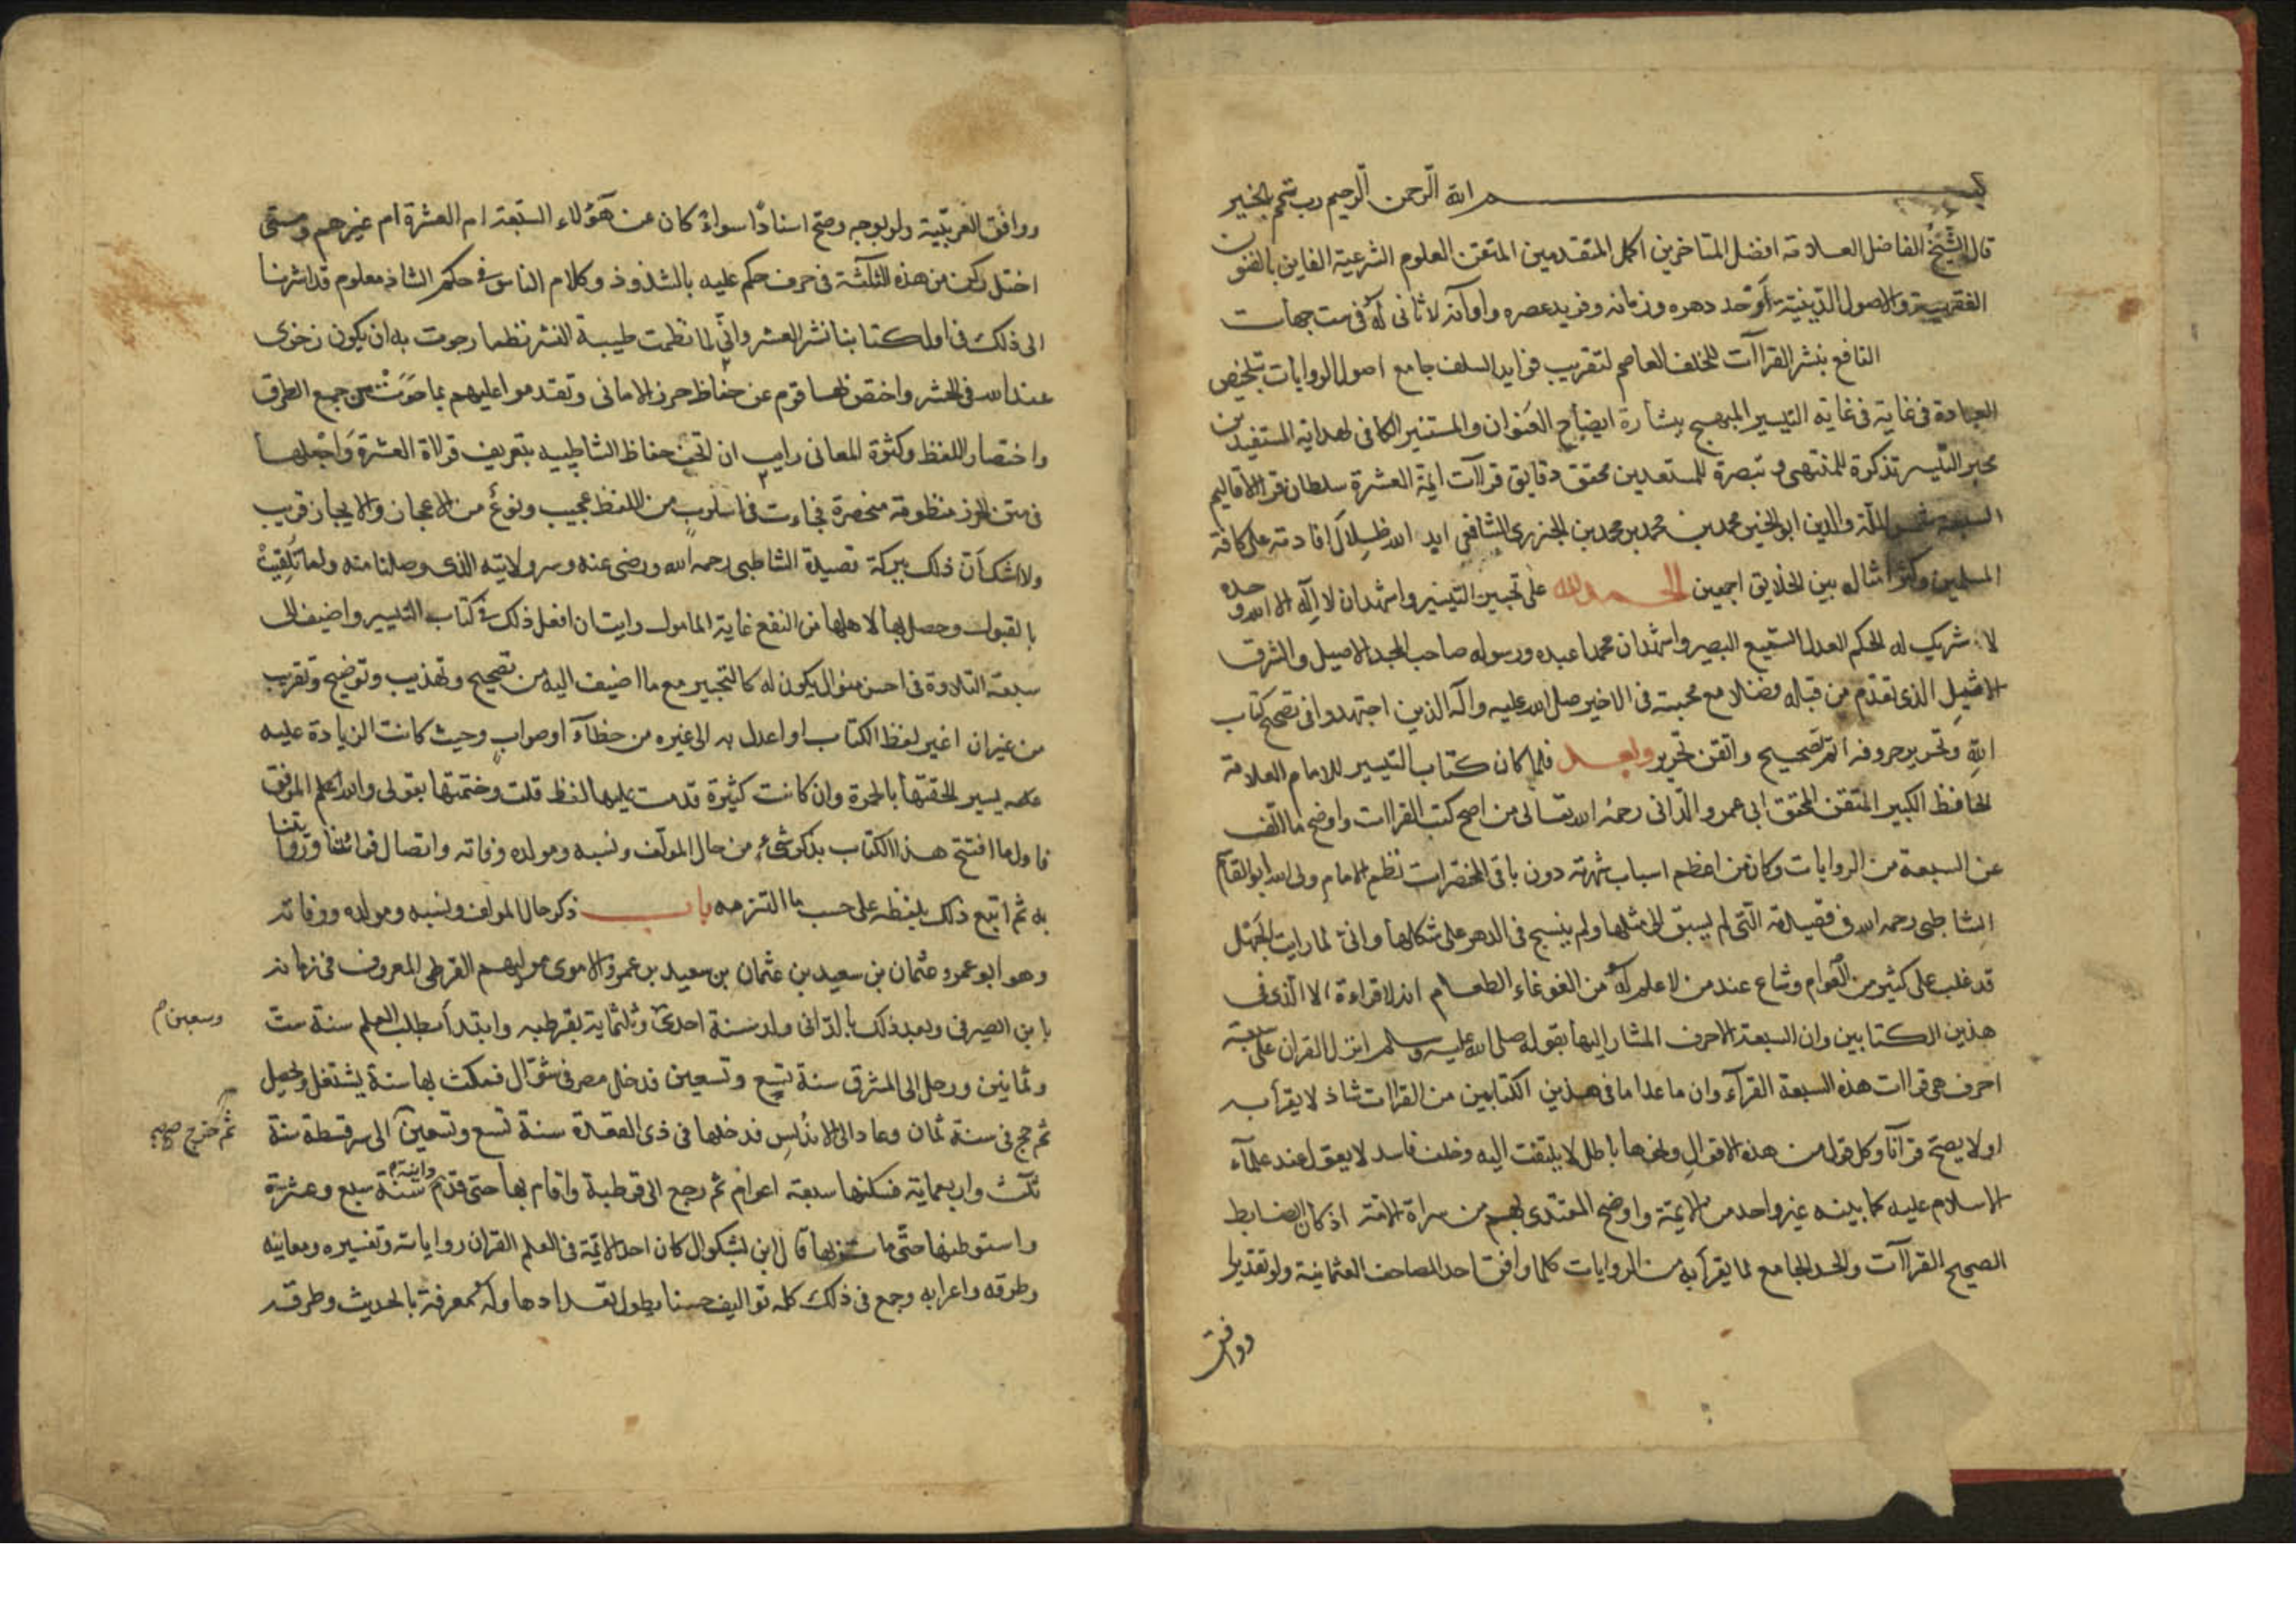 بسم الله الرحمن الرحيم رب تمم بالخير
قال الشيخ الفاضل العلامة افضل المتاخرين اكمل المتقدمين المتقن العلوم الشرعية الفايق بالفنون
الدينية اوحد دهره وزمانه وفريد عصره واوانه لا ثانى له فى ست جهات
النافع بنشر القراآت للخلف العاصم لتقريب فوايد السلف جامع اصول الروايات بتلخيص
فى غاية فى غاية التيسير المبهج بيشارة ايضاح العنوان والمستنير الكافى لهداية المستفيدين
محبر التيسير تذكرة للمنتهى و تبصرة للمستعدين محقق دقايق قراآت ايمة العشرة سلطان قراء الاقاليم
السبعة شمس الملة والدين ابو الخير محمد بن محمد بن محمد بن الجزرى الشافعى ايد الله ظلال افادته على كافة
المسلمين وكثر امثاله بين الخلايق اجمعين الحمد لله على تحبير التيسير واشهد ان لا اله الا الله وحده
لا شريك له الحكم العدل السميع البصير واشهد ان محمدا عبده ورسوله صاحب المجد الاصيل والشرف
الاثيل الذى تقدم من قبله فضلا مع محبته فى الاخير صلى الله عليه وآله الذين اجتهدوا فى تصحيح كتاب
الله وتحرير حروفه اتم تصحيح واتقن تحرير وبعد فلما كان كتاب التيسير للامام العلامة
الحافظ الكبير المتقن المحقق ابى عمرو الدانى رحمه الله تعالى من اصح كتب القراات واوضح ما الف
عن السبعة من الروايات وكان من اعظم اسباب شهرته دون باقى المختصرات نظم الامام ولى الله ابو القاسم
الشاطبى رحمه الله فى قصيدته التى لم يسبق الى مثلها ولم ينسج فى الدهر على شكلها وانى لما رايت الجهل
قد غلب على كثير من العوام وشاع عند من لا علم له من الغوغاء الطغام انه لا قراءة الا الذى فى
هذين الكتابين وان السبعة الاحرف المشار اليها بقوله صلى الله عليه وسلم انزل القران على سبعة
احرف هى قراات هذه السبعة القرآء وان ما عدا ما فى هذين الكتابين من القراات شاذ لا يقرأ به
او لا يصح قرآنا وكل قول من هذه الاقوال ونحوها باطل لا يلتفت اليه وخلف فاسد لا يعول عند علمآء
الاسلام عليه كما بينه غير واحد من الايمة واوضح المقتدى بهم من سراة الامة اذ كان الضابط
الصحيح القراآت والحد الجامع لما يقرأ به من الروايات كلما وافق احد المصاحف العثمانية ولو تقديرا
ووافق
ووافق العربية ولو بوجه وصح اسنادا سواء كان عن هؤلاء السبعة ام العشرة ام غيرهم ومتى
اختل ركن من هذه الثلثة فى حرف حكم عليه بالشذوذ وكلام الناس فى حكم الشاذ معلوم قد اشرنا
الى ذلك فى اول كتابنا نشر العشر وانى لما نظمت طيبة النشر نظما رجوت به ان يكون ذخرى
عند الله فى الحشر واختص بها قوم عن حفاظ حرز الامانى وتقدموا عليهم بما حوت من جمع الطرق
واختصار اللفظ وكثرة المعانى رايت ان اتحف حفاظ الشاطبيه بتعريف قراءة العشرة واجعلها
فى متن الحرز منظومة مختصرة فجاءت فى اسلوب من اللفظ عجيب ونوع من الاعجاز والايجاز قريب
ولا شك ان ذلك ببركة قصيدة الشاطبى رحمه الله ورضى عنه وسر ولايته الذى وصلنا منه ولما تلقيت
بالقبول وحصل بها لاهلها من النفع غاية المامول رايت ان افعل ذلك فى كتاب التيسير واضيف الى
سبعته التلاوة فى احسن منوال يكون له كالتحبير مع ما اضيف اليه من تصحيح وتهذيب وتوضيح وتقريب
من غير ان اغير لفظ الكتاب او اعدل به الى غيره من خطآء او صواب وحيث كانت الزيادة عليه
يسير الحقتها بالحمرة وان كانت كثيرة قدمت عليها لفظ قلت وختمتها بقولى والله اعلم الموفق
فاول ما افتتح هذا الكتاب بذكر شىء من حال المولف ونسبه ومولده ووفاته واتصال قرائتنا وروايتنا
به ثم اتبع ذلك بلفظه على حسب ما التزمه باب ذكر حال المولف ونسبه ومولده ووفاته
وهو ابو عمرو عثمان بن سعيد بن عثمان بن سعيد بن عمرو الاموى مولاهم القرطبى المعروف فى زمانه
بابن الصيرفى وبعد ذلك بالدانى ولد سنة احدى وثلثماية بقرطبه وابتدأ بطلب العلم سنة ست
وسبعين
وثمانين ورحل الى المشرق سنة سبع وتسعين فدخل مصر فى شوال فمكث بها سنة يشتغل ويحصل
ثم حج فى سنة ثمان وعاد الى الاندلس فدخلها فى ذى القعدة سنة تسع وتسعين الى سرقسطة سنة
ثم خرج صح
ثلث واربعماية فسكنها سبعة اعوام ثم رجع الى قرطبة واقام بها حتى قدم دانية سنة سبع وعشرة
واستوطنها حتى مات بها قال ابن بشكوال كان احد الائمة فى العلم القران رواياته وتفسيره ومعانيه
وطرقه واعرابه وجمع فى ذلك كله تواليف حسنا يطول تعدادها وله معرفة بالحديث وطرقه